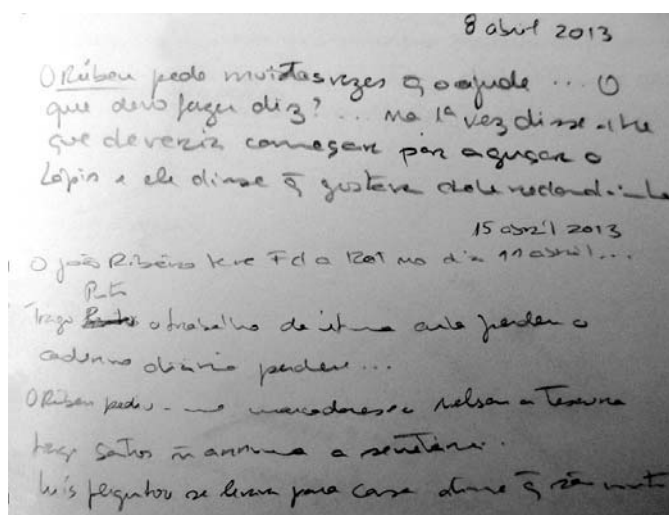 8 abril 2013
O Rúben pede muitas vezes q̃ o ajude ... O
que devo fazer diz? ... na 1ª vez disse-lhe
que deveria começar por aguçar o
Lápis e ele disse q̃ gostava dele redondinho
15 abril 2013
O João Ribeiro teve F d a no dia 11 abril...
Tiago o trabalho de aula perdeu o
caderno diário perdeu...
O Rúben pediu-me marcadores e Nelson a Tesoura
Santos ñ arruma a
Luís perguntou se levava para casa disse q̃ são